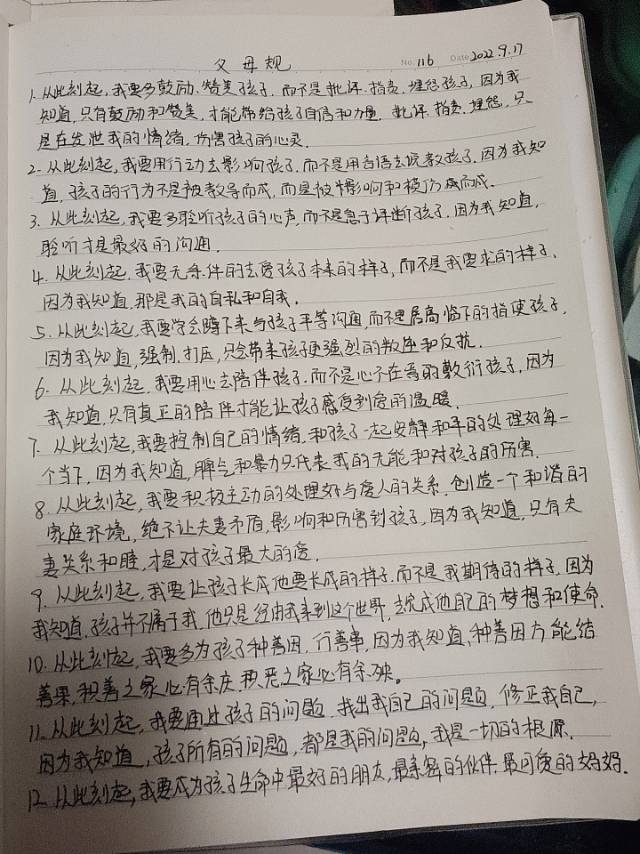 父母规
No. 116 Date 2022.9.17
1. 从此刻起,我要多鼓励、赞美孩子,而不是批评、指责、埋怨孩子,因为我
知道,只有鼓励和赞美,才能带给孩子自信和力量,批评、指责、埋怨,只
是在发泄我的情绪,伤害孩子的心灵.
2. 从此刻起,我要用行动去影响孩子,而不是用言语去说教孩子,因为我知
道,孩子的行为不是被教导而成,而是被影响和模仿而成.
3. 从此刻起,我要多聆听孩子的心声,而不是急于评断孩子,因为我知道,
聆听才是最好的沟通.
4. 从此刻起,我要无条件的去爱孩子本来的样子,而不是我要求的样子,
因为我知道,那是我的自私和自我.
5. 从此刻起,我要学会蹲下来与孩子平等沟通,而不是居高临下的指使孩子,
因为我知道,强制、打压,只会带来孩子更强烈的叛逆和反抗.
6. 从此刻起,我要用心去陪伴孩子,而不是心不在焉的敷衍孩子,因为
我知道,只有真正的陪伴才能让孩子感受到爱的温暖.
7. 从此刻起,我要控制自己的情绪,和孩子一起安静和平的处理好每一
个当下,因为我知道,脾气和暴力只代表我的无能和对孩子的伤害.
8. 从此刻起,我要积极主动的处理好与爱人的关系,创造一个和谐的
家庭环境,绝不让夫妻矛盾,影响和伤害到孩子,因为我知道,只有夫
妻关系和睦,才是对孩子最大的爱.
9. 从此刻起,我要让孩子长成他要长成的样子,而不是我期待的样子,因为
我知道,孩子并不属于我,他只是经由我来到这个世界,去完成他自己的梦想和使命.
10. 从此刻起,我要多为孩子种善因,行善事,因为我知道,种善因方能结
善果,积善之家必有余庆,积恶之家必有余殃。
11. 从此刻起,我要通过孩子的问题,找出我自己的问题,修正我自己,
因为我知道,孩子所有的问题,都是我的问题,我是一切的根源.
12. 从此刻起,我要成为孩子生命中最好的朋友,最亲密的伙伴,最可爱的妈妈.